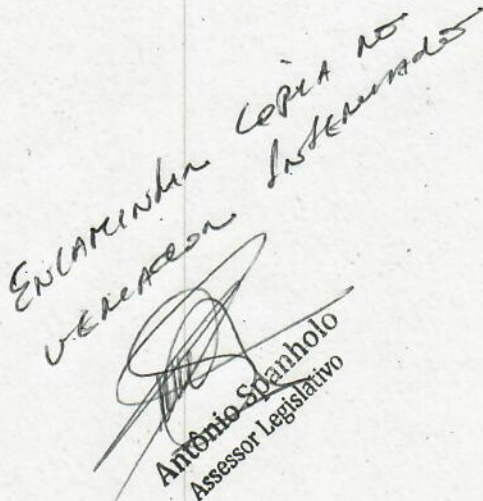 ENCAMINHAR CÓPIA AO
VEREADOR INTERESSADO
Antônio Spanholo
Assessor Legislativo